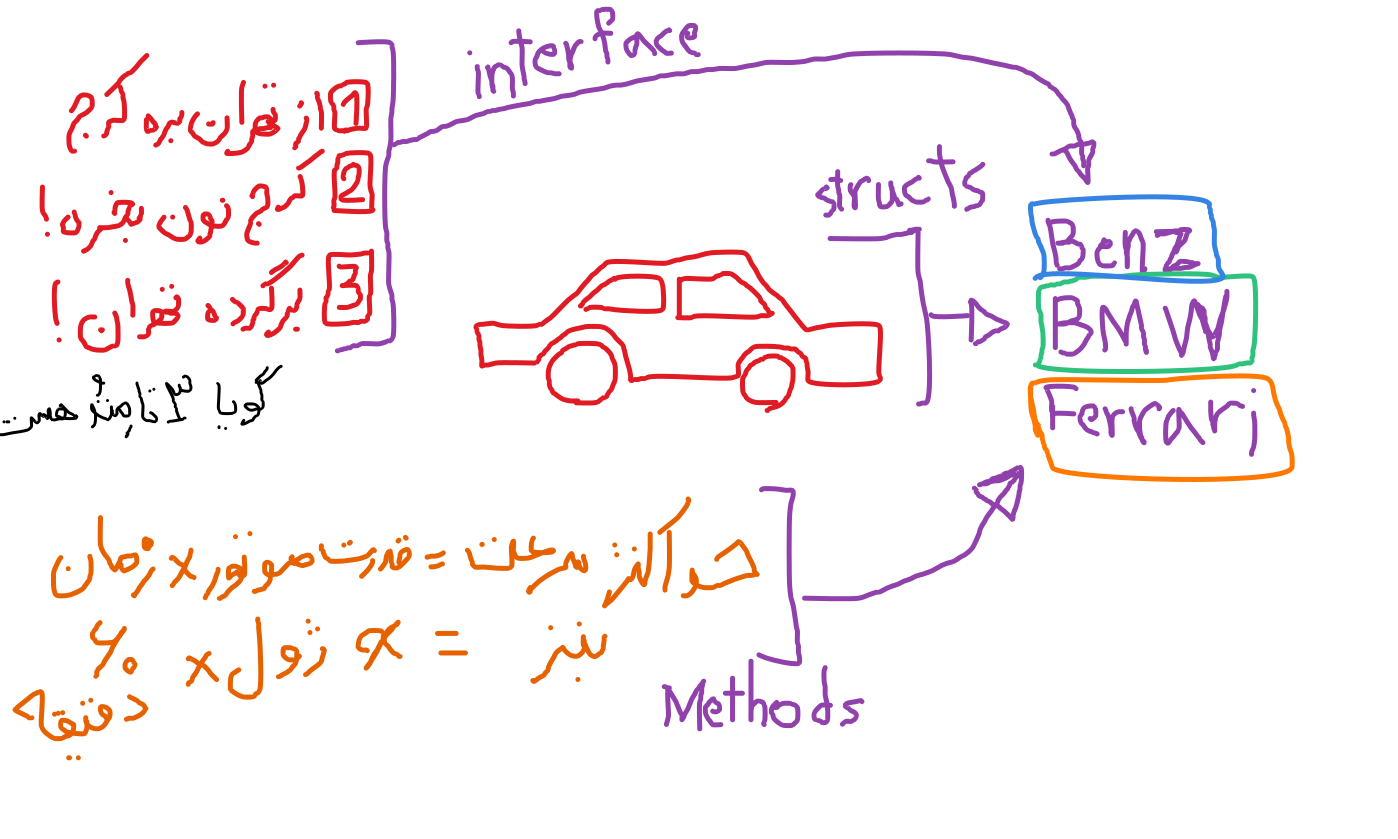 interface
1 از تهران بره کرج
2 کرج نون بخره!
3 برگرده تهران!
گویا ۳ تا مِتُد هست
structs
Benz
BMW
Ferrari
حداکثر سرعت = قدرت موتور × زمان
بنز = x ژول × ۶۰ دقیقه
Methods